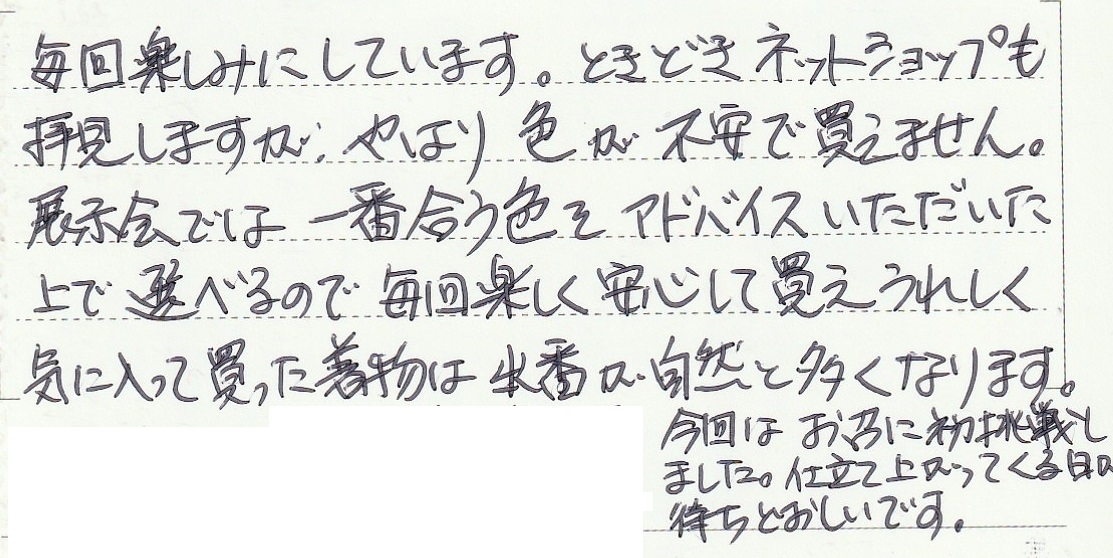 毎回楽しみにしています。ときどきネットショップも
拝見しますが、やはり色が不安で買えません。
展示会では一番合う色をアドバイスいただいた
上で選べるので毎回楽しく安心して買えうれしく
気に入って買った着物は出番が自然と多くなります。
今回はお召に初挑戦し
ました。仕立て上がってくる日が
待ちどおしいです。